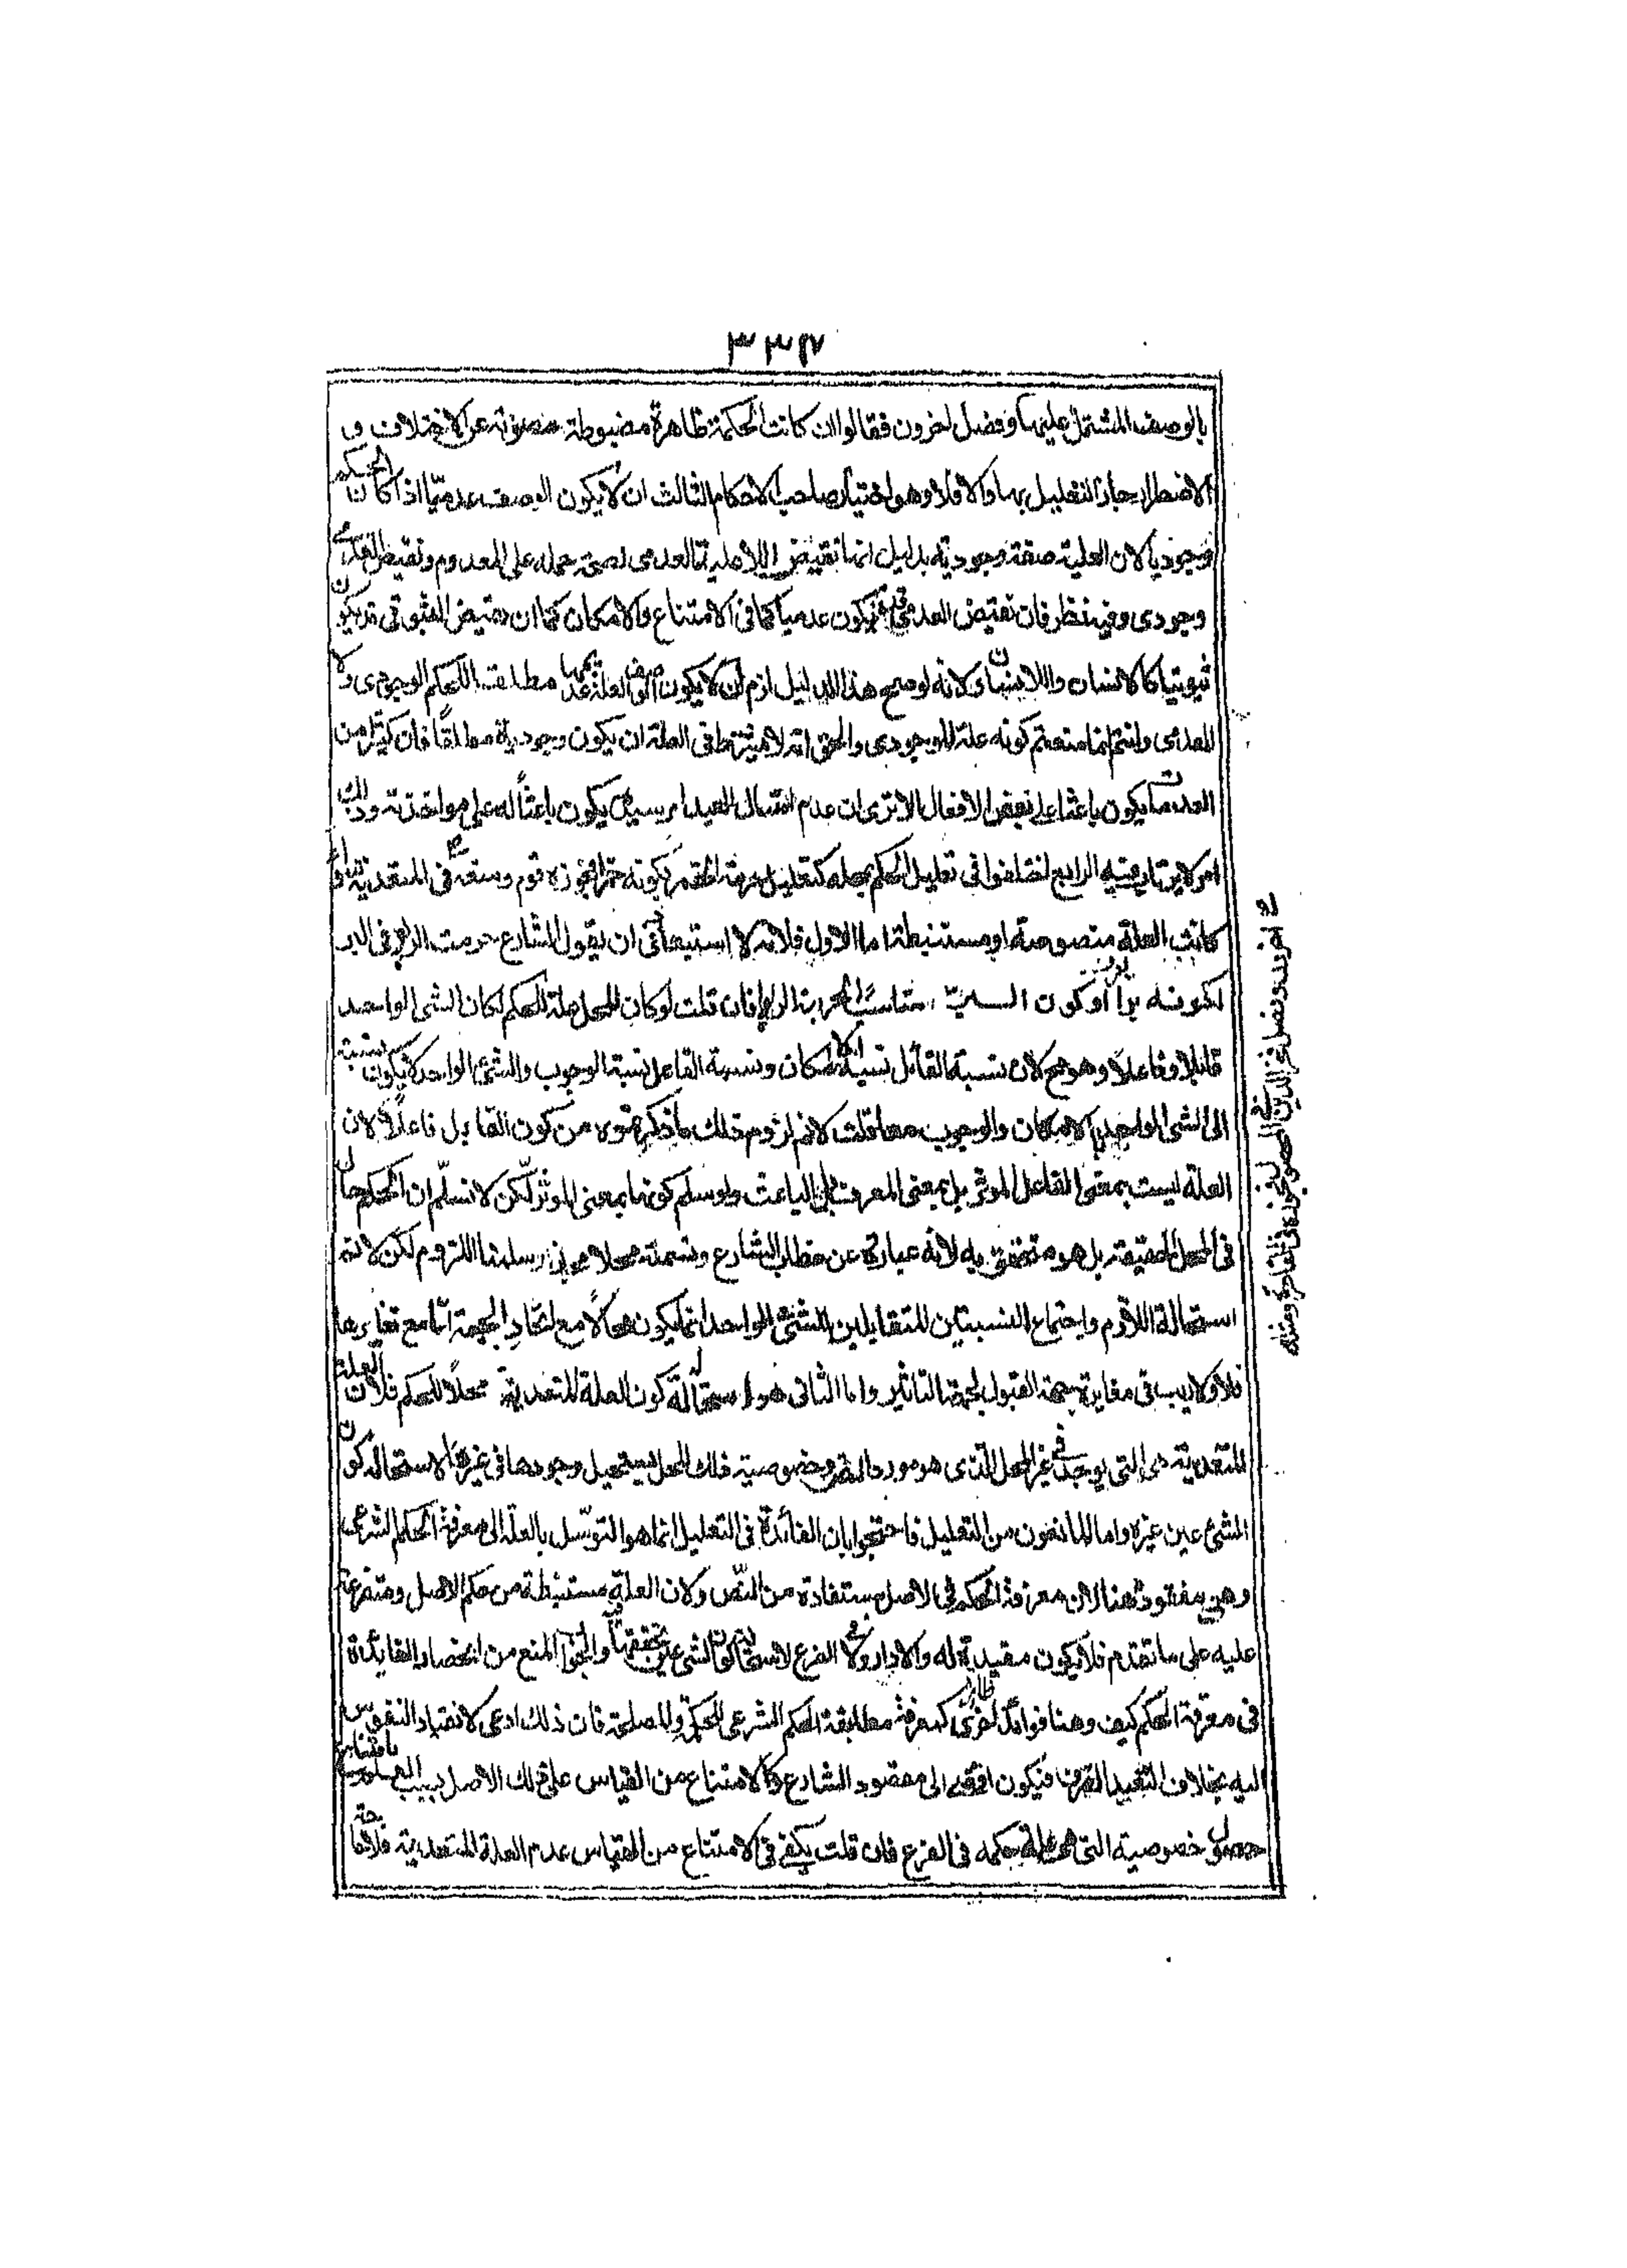 ٣٣٧
بالوصف المشتمل عليها وفصل اخرون فقالوا ان كانت الحكمة ظاهرة مضبوطة مصونة عن الاختلاف و
الاضطراب جاز التعليل بها والا فلا وهو اختيار صاحب الاحكام الثالث ان لا يكون الوصف عدميّا اذا كان الحكم
وجوديا لان العلية صفة وجودية بدليل انها نقيض اللاعلية العدمى لصحة حمله على المعدوم ونقيض العدمى
وجودى وفيه نظر فان نقيض العدمى قد يكون عدميا كما فى الامتناع والامكان كما ان نقيض الثبوتى قد يكون
ثبوتيا كالانسان واللاانسان ولانه لو صح هذا الدليل لزم ان لا يكون الوصف العلة عدميا مطلقا للحكم الوجودى ولا
العدمى وانتم انما منعتم كونه علة للوجودى والحق انه لا يشترط فى العلة ان يكون وجودية مطلقًا فان كثيرا من
العدميات يكون باعثا على بعض الافعال الا ترى ان عدم امتثال العبد امر سيده يكون باعثًا له على مواخذته وذلك
امر لا يرتاب فيه الرابع اختلفوا فى تعليل الحكم بمحله كتعليل حرمة الخمر بكونه خمرا فجوزه قوم ومنعه فى المتعدية سواء
كانت العلة منصوصة او مستنبطة اما الاول فلانه لا استبعاد فى ان يقول الشارع حرمت الربا فى البر
لكونه برا او كون البر مناسبًا لحرمة الربا فان قلت لو كان المحل علة للحكم لكان الشئ الواحد
قابلا وفاعلا وهو مح لان نسبة القابل نسبة الامكان ونسبة الفاعل نسبة الوجوب والشئ الواحد لا يكون نسبته
الى الشئ الواحد بالامكان والوجوب معا قلت لا نم لزوم ذلك ما ذكرتموه من كون القابل فاعلاً لان
العلة ليست بمعنى الفاعل الموثر بل بمعنى المعرف او الباعث ولو سلم كونها بمعنى الموثر لكن لا نسلّم ان الحكم حال
فى المحل الحقيقة بل هو متحقق به لانه عبارة عن خطاب الشارع وتسمية محلا مجازا وسلمنا اللزوم لكن لا نم
استحالة اللازم واجتماع النسبتين المتقابلين للشئ الواحد انما يكون محالًا مع اتحاد الجهة امّا مع تغايرها
فلا ولا ريب فى مغايرة جهة القبول لجهة التاثير واما الثانى هو استحالة كون العلة المتعدية محلًا للحكم فلان العلة
المتعدية هى التى يوجد فى غير المحل الذى هو مورد النص وخصوصية ذلك المحل يستحيل وجودها فى غيره لاستحالة كون
الشئ عين غيره واما المانعون من التعليل فاحتجوا بان الفائدة فى التعليل انما هو التوسّل بالعلة الى معرفة الحكم الشرعى
وهى مفقودة هنا لان معرفة الحكم فى الاصل مستفادة من النّص ولان العلة مستنبطة من حكم الاصل ومتفرعة
عليه على ما تقدم فلا يكون مفيدة له والا دار ولا فى الفرع لاستحالة كون الشئ عين والجواب المنع من انحصار الفائدة
فى معرفة الحكم كيف وهنا فوائد اخرى كمعرفة مطابقة الحكم الشرعى للحكمة والمصلحة فان ذلك ادعى لانقياد النفوس
اليه بخلاف التعبد الصرف فيكون افضى الى مقصود الشارع وكالامتناع من القياس على ذلك الاصل بسبب العلم بامتناع
حصول خصوصية التى هى علة حكمه فى الفرع فان قلت يكفى فى الامتناع من القياس عدم العلة المتعدية فلا حاجة